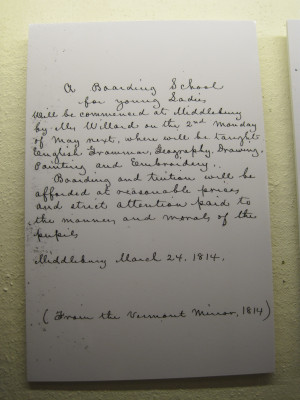 A Boarding School
for young Ladies
Will be commenced at Middlebury
by Mrs Willard on the 2nd Monday
of May next, where will be taught
English Grammar, Geography, Drawing,
Painting and Embroidery.
Boarding and tuition will be
afforded at reasonable prices
and strict attention paid to
the manners and morals of the
pupils
Middlebury March 24, 1814.
(From the Vermont Mirror, 1814)